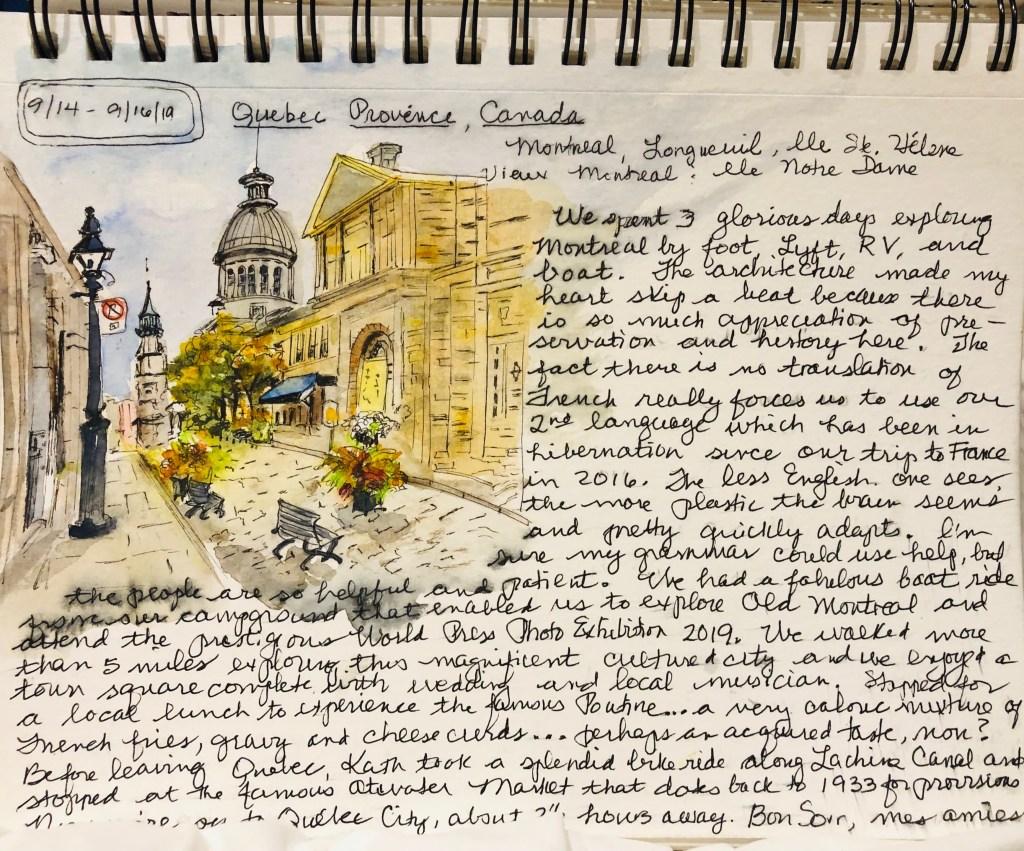 9/14 - 9/16/19
Quebec Provence, Canada
Montreal, Longueuil, Ile Ste. Hélene
Vieux Montreal: Ile Notre Dame
We spent 3 glorious days exploring
Montreal by foot, Lyft, RV, and
boat. The architecture made my
heart skip a beat because there
is so much appreciation of pre-
servation and history here. The
fact there is no translation of
French really forces us to use our
2nd language which has been in
hibernation since our trip to France
in 2016. The less English one sees,
the more plastic the brain seems
and pretty quickly adapts. I'm
sure my grammar could use help, but
the people are so helpful and patient. We had a fabulous boat ride
from our campground that enabled us to explore Old Montreal and
attend the prestigious World Press Photo Exhibition 2019. We walked more
than 5 miles exploring this magnificent cultured city and we enjoyed a
town square complete with wedding and local musician. Stopped for
a local lunch to experience the famous Poutine... a very caloric mixture of
French fries, gravy and cheese curds... perhaps an acquired taste, non?
Before leaving Quebec, Kath took a splendid bike ride along Lachine Canal and
stopped at the famous Atwater Market that dates back to 1933 for provisions
to Québec City, about hours away. Bon Soir, mes amies